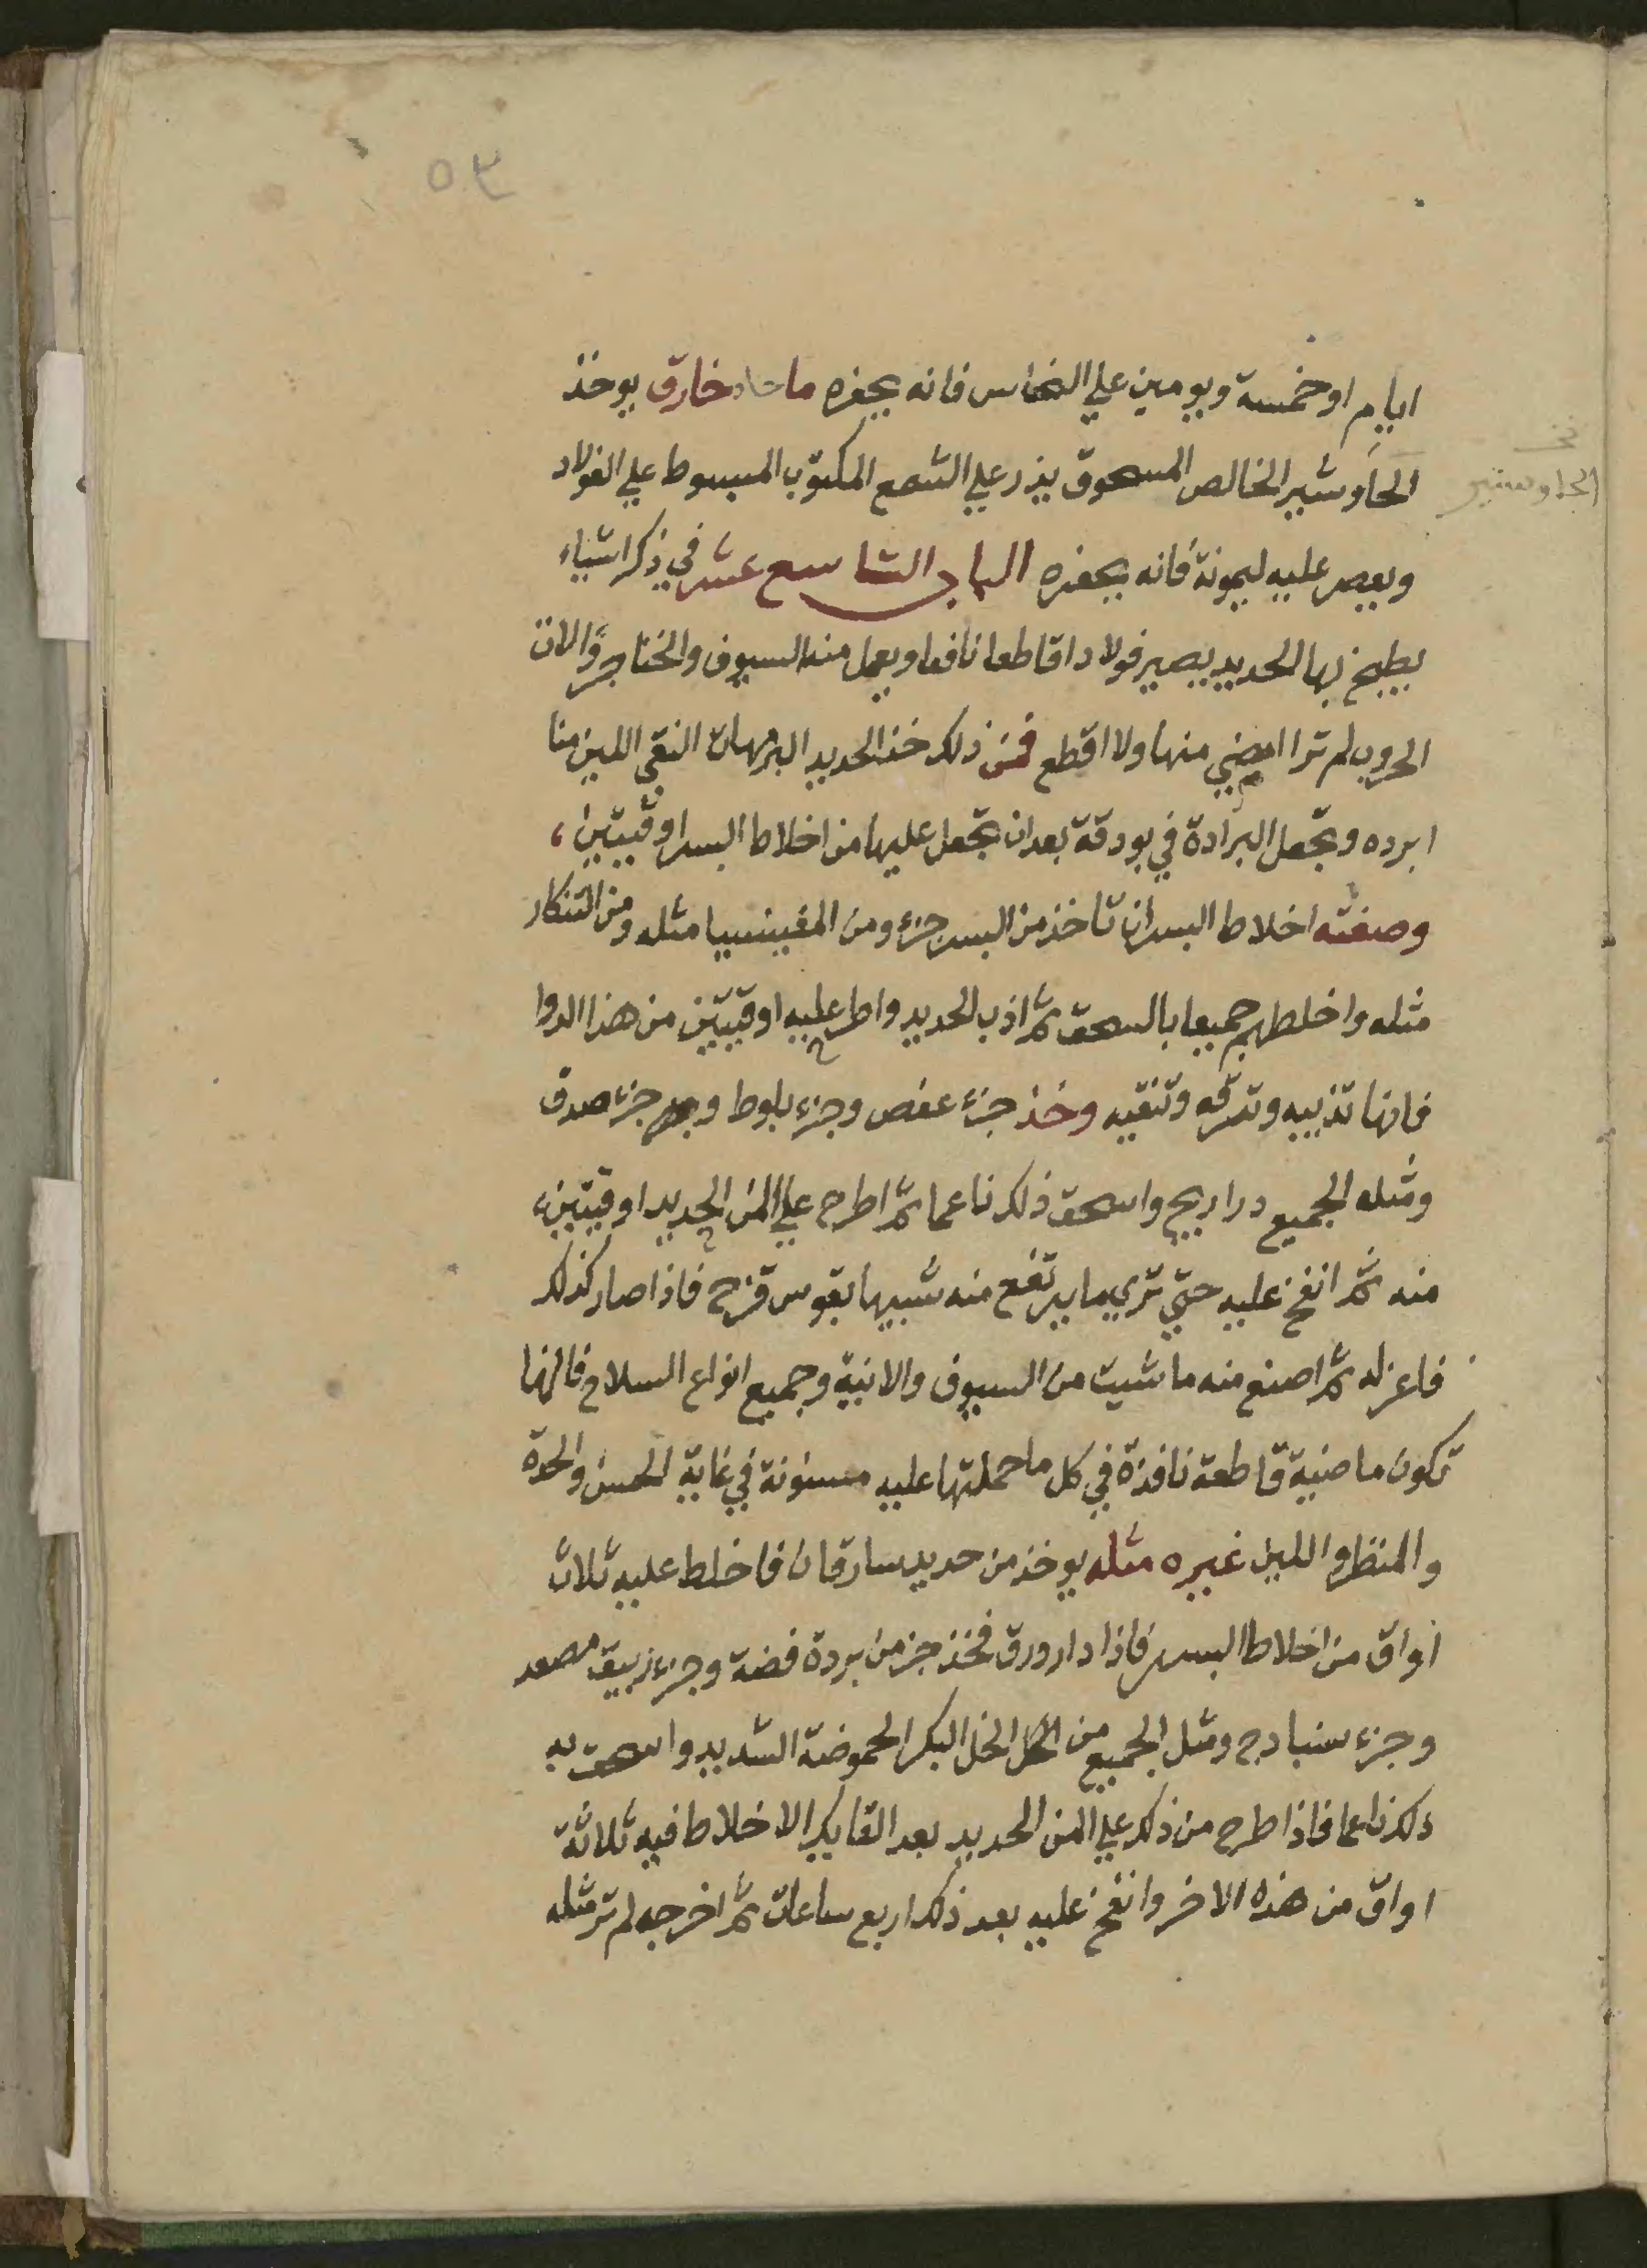 ٥٣
ايام او خمسة ويومين علي النحاس فانه يحفره ما حاد خارق يوخذ
الجاوشير الخالص المسحوق يذر علي الشمع المكتوب المبسوط علي الفولاد
الجاوشير
ويعصر عليه ليمونة فانه يحفره الباب التاسع عشر في ذكر اشياء
يطبخ بها الحديد يصير فولادا قاطعا نافعا ويعمل منه السيوف والخناجر والات
الحروب لم ترا امضي منها ولا اقطع فمن ذلك خذ الحديد البرمهان النقي اللين منا
ابرده وتجعل البرادة في بودقة بعد ان تجعل عليها من اخلاط البسر اوقيتين
وصفته اخلاط البسر ان تاخذ من البسر جزء ومن المغينسيا مثله ومن التنكار
مثله واخلطهم جميعا بالسحق ثم اذب الحديد واطرح عليه اوقيتين من هذا الدوا
فانها تذيبه وتدقه وتنقيه وخذ جزء عفص وجزء بلوط وجزء صدف
ومثله الجميع دراريح واسحق ذلك ناعما ثم اطرح علي المن الحديد اوقيتين
منه ثم انفخ عليه حتي تري ما يرتفع منه شبيها بقوس قزح فاذا صار كذلك
فاعزله ثم اصنع منه ما شيت من السيوف والانية وجميع انواع السلاح فانها
تكون ماضية قاطعة نافذة في كل ما حملتها عليه مسنونة في غاية الحسن والحدة
والمنظر واللين غيره مثله يوخذ من حديد سارقان فاخلط عليه ثلاث
اواق من اخلاط البسر فاذا دار ورق فخذ جز من بردة فضة وجزء زيبق مصعد
وجزء سنبادج ومثل الجميع من الخل البكر الحموضة الشديد واسحق به
ذلك ناعما فاذا طرح من ذلك علي المن الحديد بعد القايك الاخلاط فيه ثلاثة
اواق من هذه الاخر وانفخ عليه بعد ذلك اربع ساعات ثم اخرجه لم تر مثله